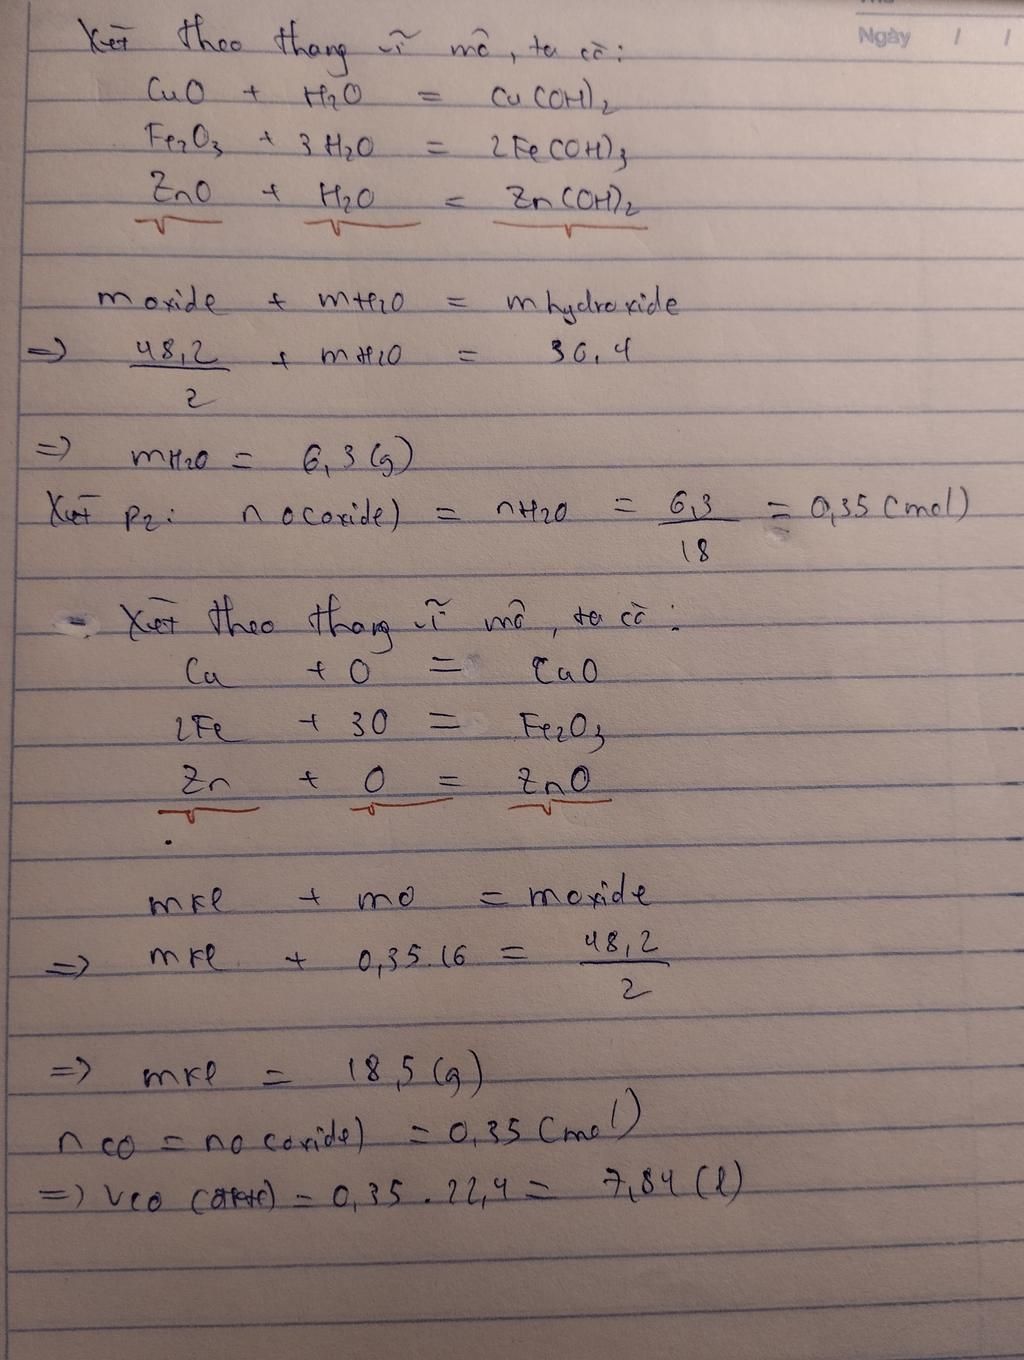 Ngày / /
Xét theo thang vĩ mô, ta có:
CuO + H2O = Cu(OH)2
Fe2O3 + 3H2O = 2Fe(OH)3
ZnO + H2O = Zn(OH)2
m oxide + mH2O = m hydroxide
=> 48,2/2 + mH2O = 30,4
=> mH2O = 6,3 (g)
Xét P2: nO(oxide) = nH2O = 6,3/18 = 0,35 (mol)
- Xét theo thang vĩ mô, ta có:
Cu + O = CuO
2Fe + 3O = Fe2O3
Zn + O = ZnO
mkl + mO = moxide
=> mkl + 0,35.16 = 48,2/2
=> mkl = 18,5 (g)
nCO = nO(oxide) = 0,35 (mol)
=> VCO (đktc) = 0,35 . 22,4 = 7,84 (l)